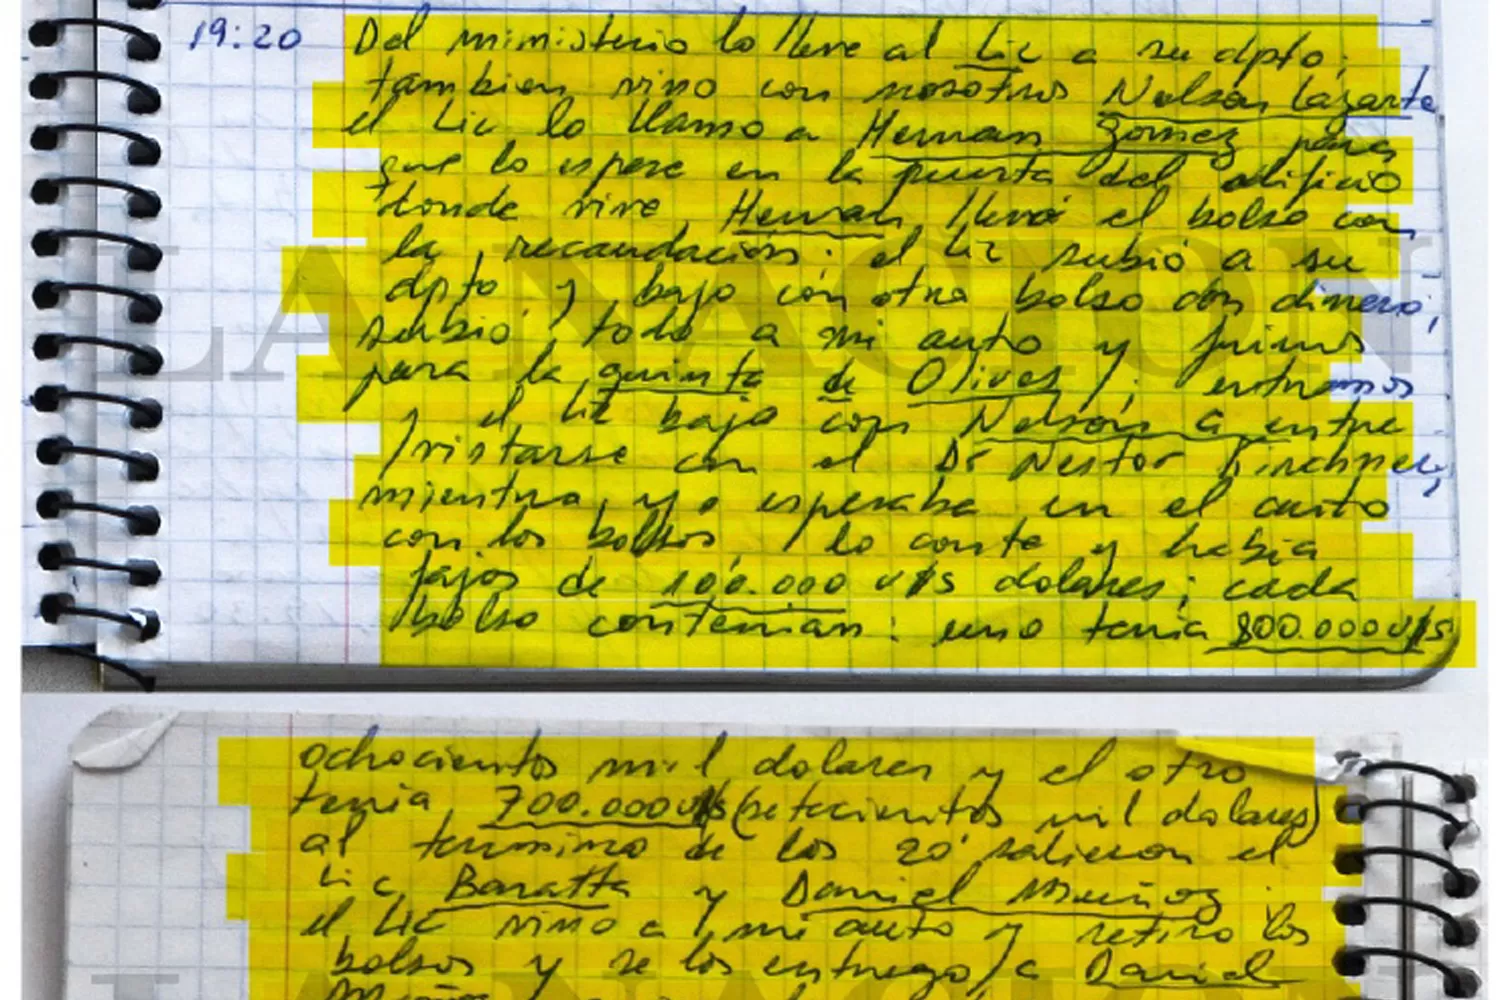 19:20 Del ministerio lo lleve al Lic a su dpto;
tambien vino con nosotros Nelson Lazarte
el Lic lo llamo a Hernan Gomez para
que lo espere en la puerta del edificio
donde vive, Hernan llevó el bolso con
la recaudación; el Lic subió a su
dpto y bajo con otro bolso con dinero;
subió todo a mi auto y fuimos
para la quinta de Olivos; entramos
y el Lic bajo con Nelson a entre
vistarse con el Dr Nestor Kirchner,
mientra yo esperaba en el auto
con los bolsos, lo conte y habia
fajos de 100.000 u$s dolares; cada
bolso contenian: uno tenia 800.000u$s
LA NACION
ochocientos mil dolares y el otro
tenia 700.000u$s (setecientos mil dolares)
al termino de los 20' salieron el
Lic Baratta y Daniel Muñoz
el Lic vino a mi auto y retiro los
bolsos y se los entrego a Daniel
Muñoz